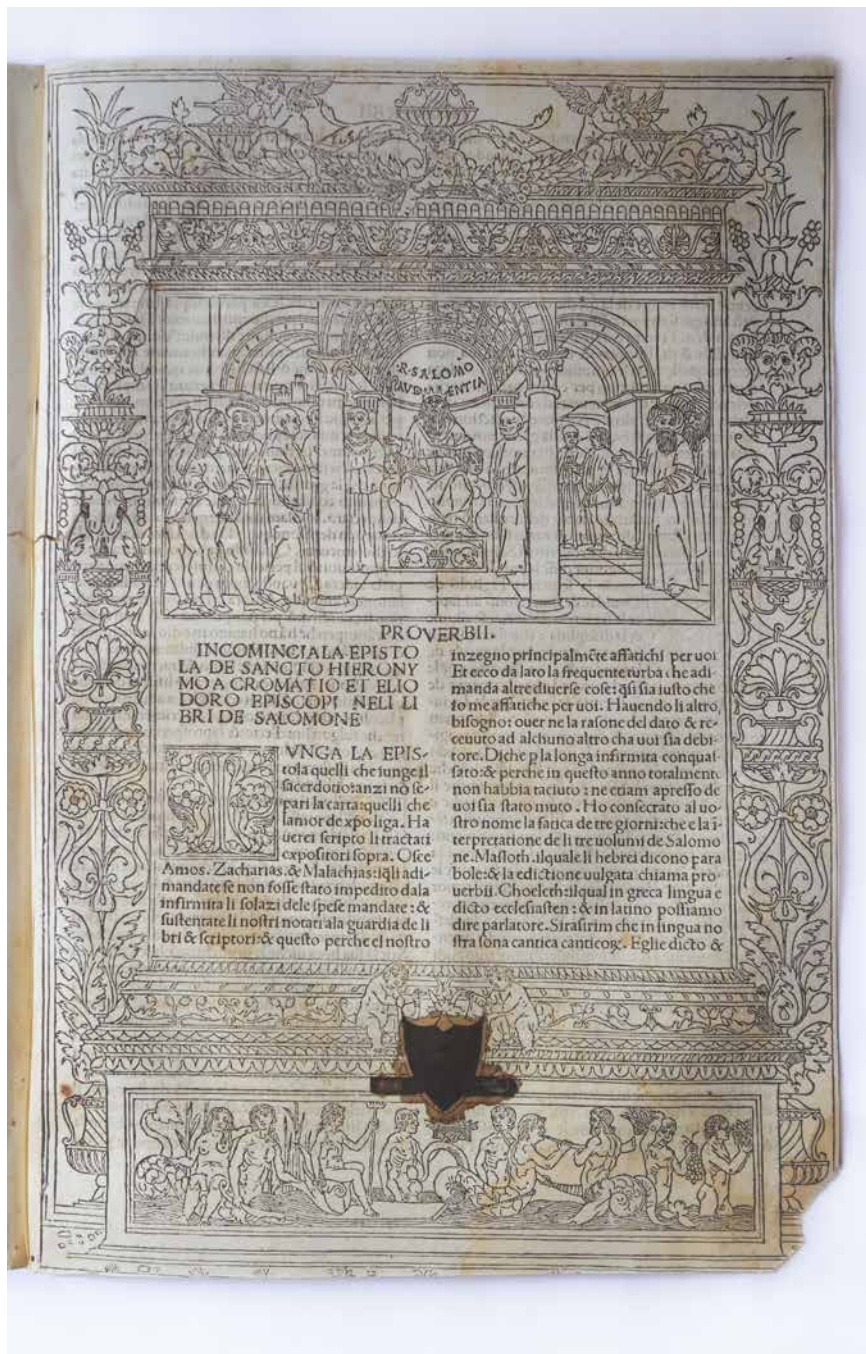 R·SALOMŌ
PROVERBII.
INCOMINCIA LA EPISTO
LA DE SANCTO HIERONY
MO A CROMATIO ET ELIO
DORO EPISCOPI NELI LI
BRI DE SALOMONE
IVNGA LA EPIS-
tola quelli che iunge il
sacerdotio: anzi nō se-
pari la carta: quelli che
lamor de xp̄o liga. Ha
uerei scripto li tractati
expositori sopra. Osee
Amos. Zacharias. & Malachias: iq̄li adi-
mandate se non fosse stato impedito dala
infirmita li solazi dele spese mandate: &
sustentate li nostri notati ala guardia de li
bri & scriptori: & questo perche el nostro
inzegno principalmēte affatichi per uoi
Et ecco da lato la frequente turba che adi-
manda altre diuerse cose: q̄si sia iusto che
io me affatiche per uoi. Hauendo li altro,
bisogno: ouer ne la rasone del dato & re-
ceuuto ad alchuno altro cha uoi sia debi-
tore. Diche p la longa infirmita conquas-
sato: & perche in questo anno totalmente
non habbia taciuto: ne etiam apresso de
uoi sia stato muto. Ho consecrato al uo-
stro nome la fatica de tre giorni: che e la ī-
terpretatione de li tre uolumi de Salomo
ne. Masloth. ilquale li hebrei dicono para
bole: & la edictione uulgata chiama pro-
uerbii. Choeleth: ilqual in greca lingua e
dicto ecclesiasten: & in latino possiamo
dire parlatore. Sirasirim che in lingua no
stra sona cantica canticoꝝ. Eglie dicto &